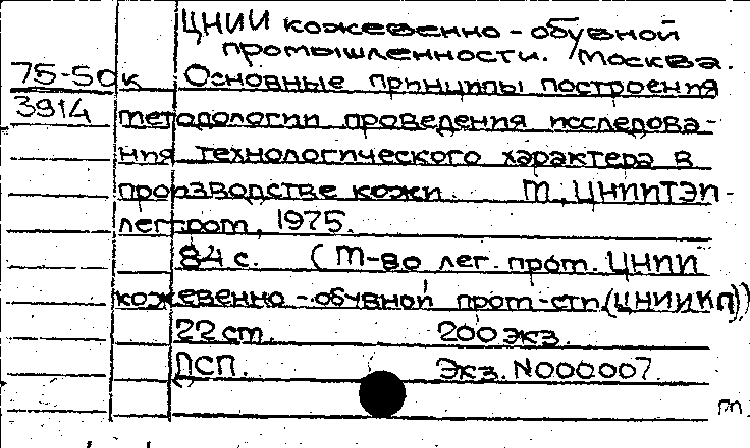 ЦНИИ кожевенно-обувной
промышленности. Москва.
75-50к Основные принципы построения
3914 методологии проведения исследова-
ния технологического характера в
производстве кожи. М., ЦНИИТЭИ-
легпром, 1975.
84 с. (М-во лег. пром. ЦНИИ
кожевенно-обувной пром-сти (ЦНИИКП))
22 см. 200 экз.
ДСП. Экз. N000007.